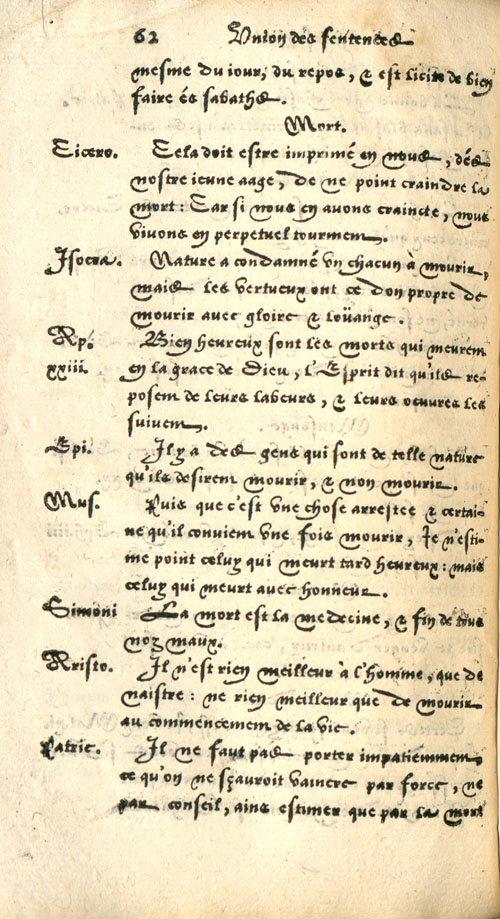 62 Vnion des sentences
mesme du iour, du repos, & est licite de bien
faire és sabaths.
Mort.
Cicero. Cela doit estre imprimé en nous, dés
nostre ieune aage, de ne point craindre la
mort: Car si nous en auons craincte, nous
viuons en perpetuel tourment.
Isocra. Nature a condamné vn chacun à mourir,
mais les vertueux ont ce don propre de
mourir auec gloire & loüange.
Ap. Bien heureux sont les morts qui meurent
xxiii. en la grace de Dieu, l'Esprit dit qu'ils re-
posent de leurs labeurs, & leurs oeuures les
suiuent.
Epi. Il y a des gens qui sont de telle nature
qu'ils desirent mourir, & non mourir.
Mus. Puis que c'est vne chose arrestee & certai-
ne qu'il conuient vne fois mourir, Ie n'esti-
me point celuy qui meurt tard heureux: mais
celuy qui meurt auec honneur.
Simoni La mort est la medecine, & fin de tous
noz maux.
Aristo. Il n'est rien meilleur à l'homme, que de
naistre: ne rien meilleur que de mourir
au commencement de la vie.
Patric. Il ne faut pas porter impatiemment
ce qu'on ne sçauroit vaincre par force, ne
par conseil, ains estimer que par la mort